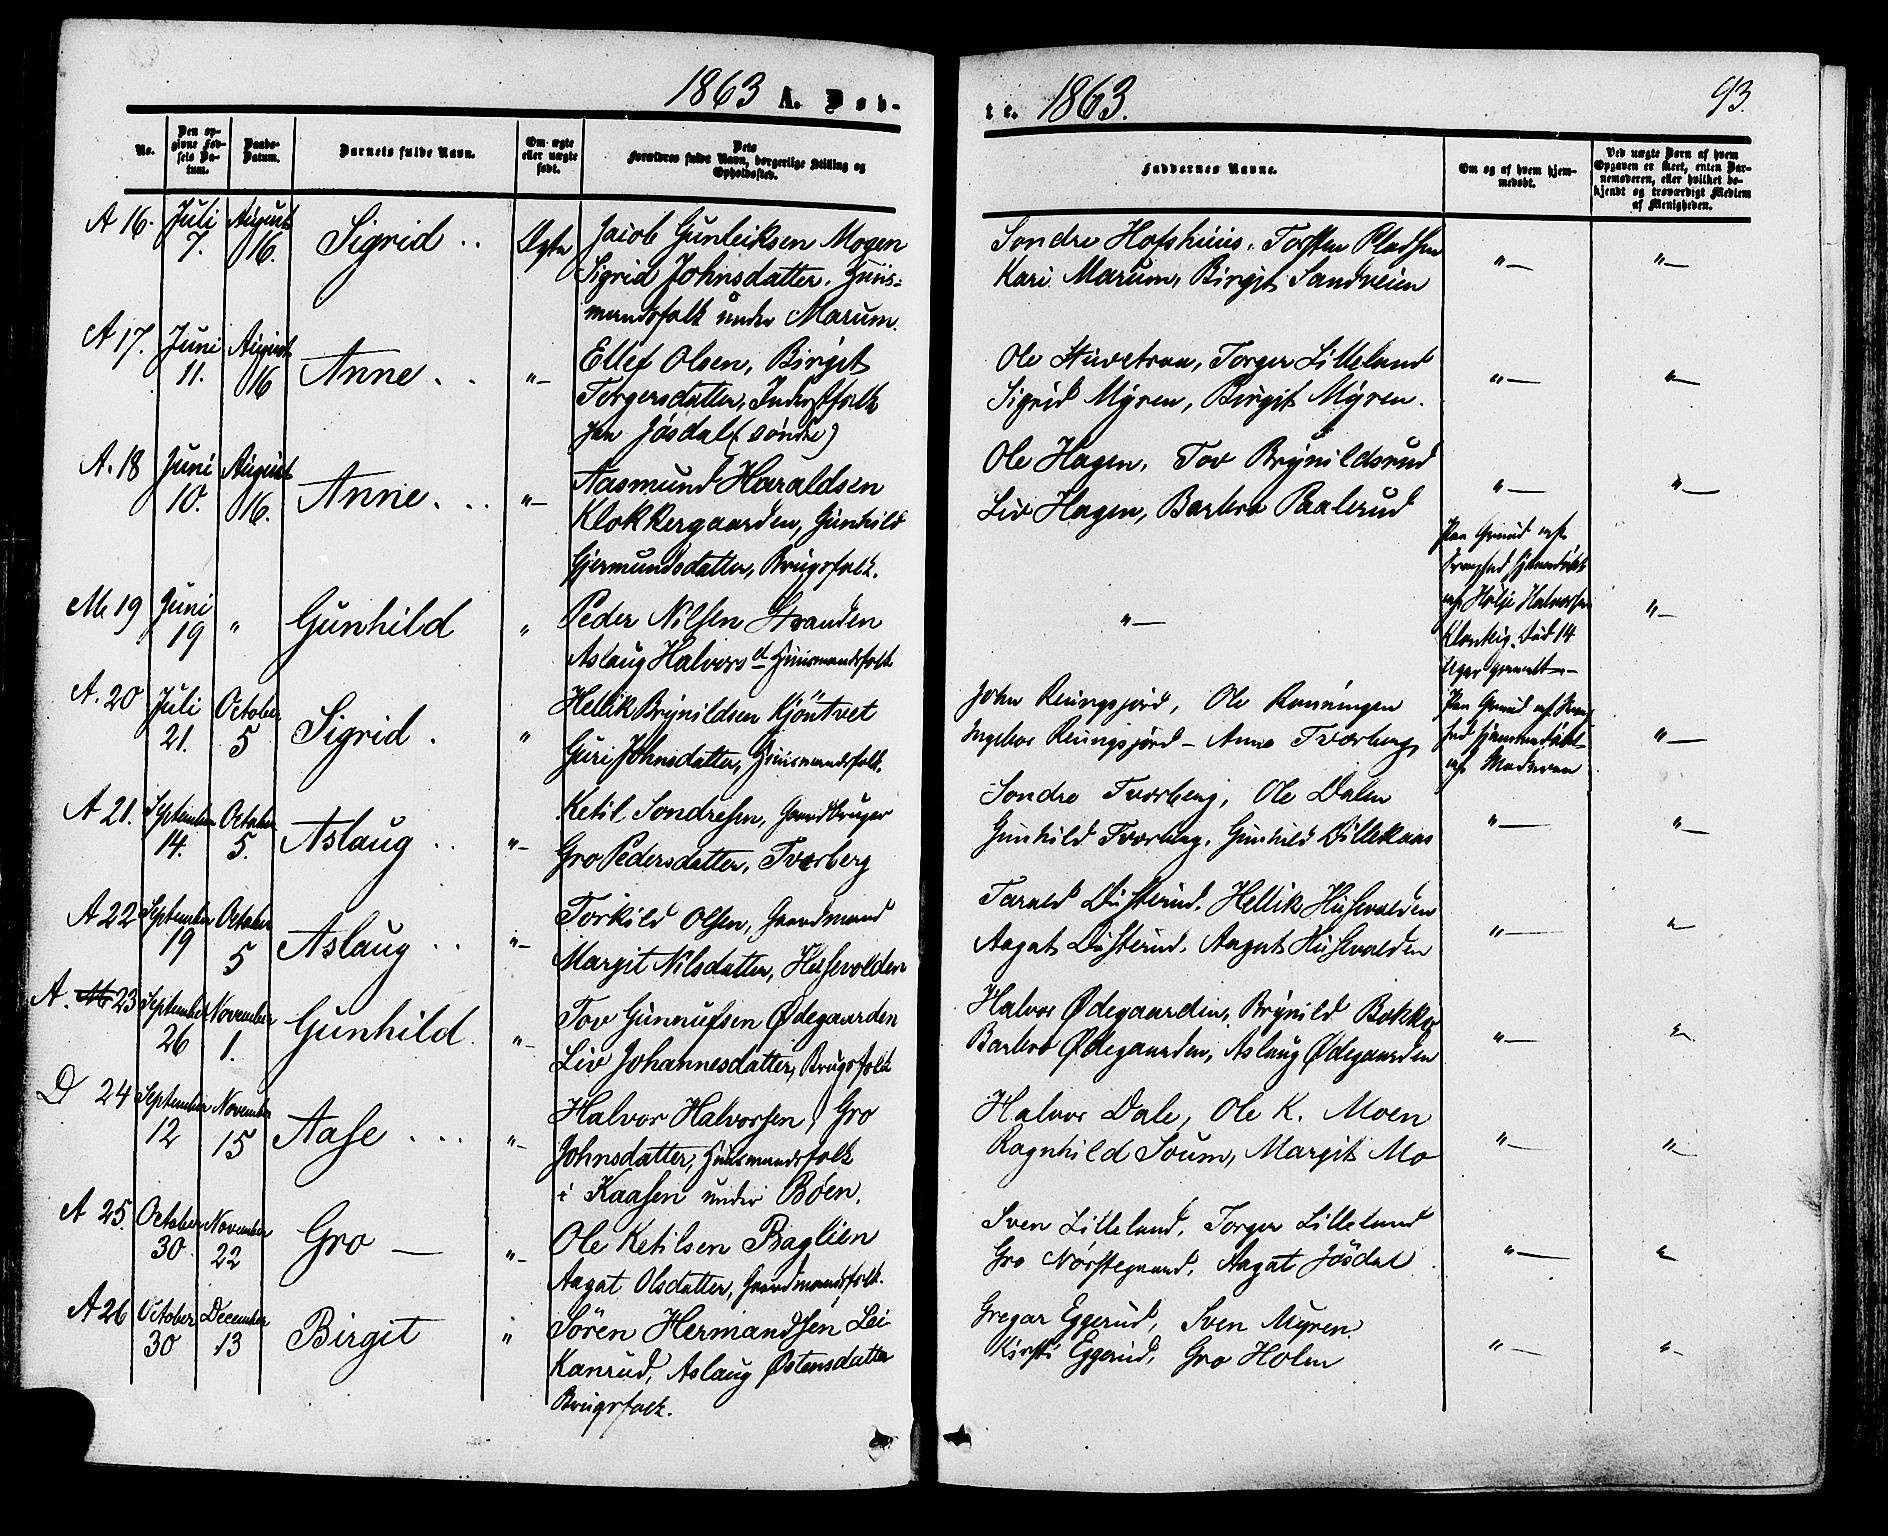 1863 A. Døb-
te. 1863. 93.
No.
Den opgivne Fødsels Datum.
Daabs-Datum.
Barnets fulde Navn.
Om ægte eller uægte født.
Dets Forældres fulde Navn, borgerlige Stilling og Opholdssted.
Faddernes Navne.
Om og af hvem hjemmedøbt.
Ved uægte Børn af hvem Opgaven er skeet, enten Barnemoderen, eller hvilket bekjendt og troværdigt Medlem af Menigheden.
A 16. Juli 7. August 16. Sigrid .. Ægte Jacob Gunleiksen Mogen
Sigrid Johnsdatter. Huus-
mandsfolk under Marum.
Sondre Hofshuus, Torsten Pladsen "— "—
Kari Marum, Birgit Sandveien
A 17. Juni 11. August 16 Anne . . "– Ellef Olsen, Birgit
Torgersdatter, Inderstfolk
paa Jøsdal (søndre)
Ole Stuvetraa, Torger Lilleland "— "–
Sigrid Myren, Birgit Myren.
A. 18 Juni 10. August 16. Anne . . . "– Aasmund Haraldsen
Klokkergaarden, Gunhild
Gjermundsdatter, Brugsfolk.
Ole Hagen, Tov Brynildsrud "— "—
Liv Hagen, Barbro Paalerud
M 19 Juni 19 " Gunhild " Peder Nilsen Stranden
Aslaug Halvorsd Huusmandsfolk
"—
Paa Grund af
Svaghed hjemmedøbt
af Helje Halvorsen
Død 14
Dage gammelt —
"—
A. 20 Juli 21. October 5 Sigrid . " Hellik Brynildsen Kjøntvet
Guri Johnsdatter, Huusmandsfolk.
John Ruugsjord, Ole Rønningen
Ingebor Ruugsjord – Anne Tværberg,
Paa Grund af Svag-
hed hjemmedøbt
af Moderen
"—
A 21. September 14. October 5. Aslaug .. "– Ketil Sondresen, Gaardbruger
Gro Pedersdatter, Tværberg
Sondre Tværberg, Ole Dalen
Gunhild Tværberg, Gunhild Lillekaas "— "–
A 22 September 19 October 5 Aslaug .. "– Torkild Olsen, Gaardmand
Margit Nilsdatter, Husevolden
Tarald Dusterud, Hellik Husevolden
Aagat Dusterud, Aagat Husevolden "— "–
A. M 23 September 26 November 1. Gunhild. "– Tov Gunnufsen Ødegaarden
Liv Johannesdatter, Brugsfolk
Halvor Ødegaarden, Brynild Bakke
Barbro Ødegaarden, Aslaug Ødegaarden "– "–
D 24 September 12 November 15 Aase . . . "– Halvor Halvorsen, Gro
Johnsdatter, Huusmandsfolk
i Kaasen under Böen.
Halvor Dale, Ole K. Moen
Ragnhild Soum, Margit Mo "– "–
A 25. October 30 November 22 Gro — "– Ole Ketilsen Baglien
Aagat Olsdatter, Gaardmandsfolk.
Sven Lilleland, Torger Lilleland
Gro Nørstegaard, Aagat Jøsdal "— "
A 26 October 30 December 13 Birgit " Sören Hermandsen Lei-
Kanrud, Aslaug Østensdatter
Brugsfolk.
Gregar Eggerud, Sven Myren.
Kirsti Eggerud, Gro Holm "— "–